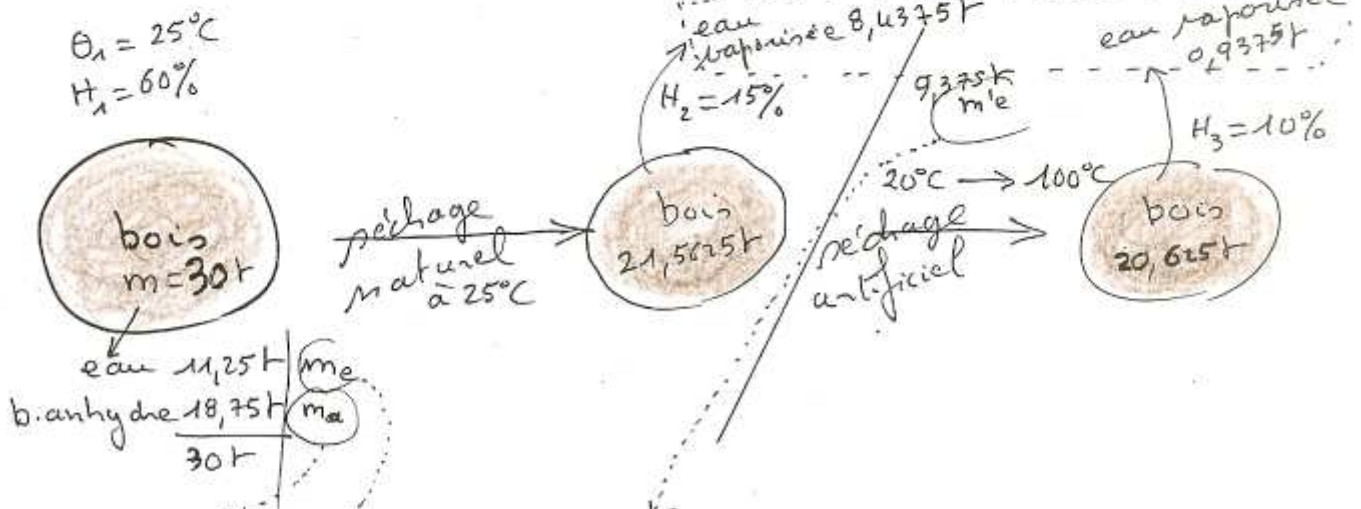 θ₁ = 25°C
H₁ = 60%
bois
m = 30t
eau 11,25t | me
b. anhydre 18,75t | ma
30t
séchage
naturel
à 25°C
eau
vaporisée 8,4375t
H₂ = 15%
bois
21,5625t
9,375t
m'e
20°C → 100°C
séchage
artificiel
eau vaporisée
0,9375t
H₃ = 10%
bois
20,625t